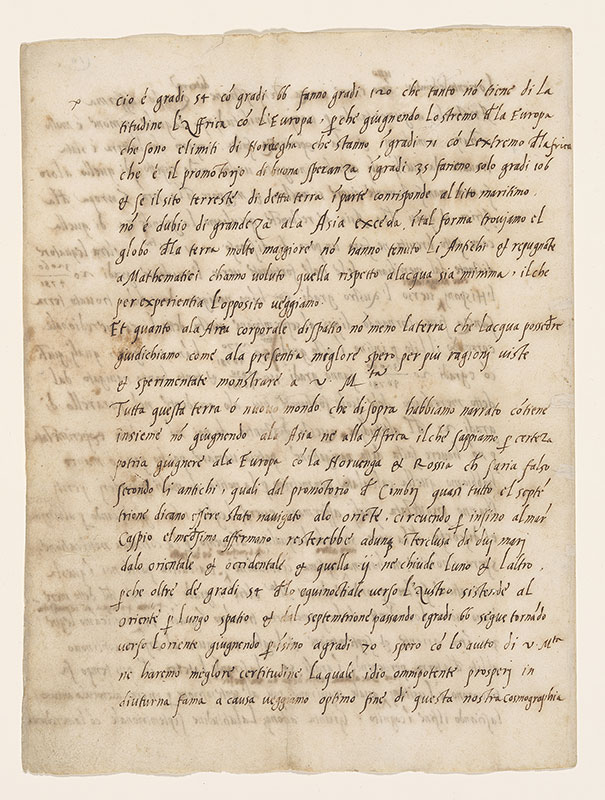 cio é gradi 54 có gradi 66 fanno gradi 120 che tanto nó tiene di la
titudine l'Affrica có l'Europa, pche giugnendo lo stremo dla Europa
che sono e limiti di Norvegha che stanno i gradi 71 có l'extremo dla Africa
che é il promotorjo di buona speranza i gradi 35 sarieno solo gradi 106
& se il sito terreste di detta terra i parte conrisponde al lito maritimo.
nó é dubio di grandeza ala Asia exceda, i tal forma troujamo el
globo dla terra molto maggiore nó hanno tenuto li Antichi & repugnate
a Mathematici channo voluto quella rispetto alacqua sia minima, il che
per experientia l'opposito veggiamo:
Et quanto ala Area corporale di spatio nó meno la terra che lacqua possedre
guidichiamo come ala presentia miglore spero per piu ragionj viste
& sperimentate monstrare a v. Mta
Tutta questa terra ó nuovo mondo che di sopra habbiamo narrato cótiene
insieme nó giugnendo ala Asia ne alla Africa il ché sappiamo p certeza
potria giugnere ala Europa có la Norvenga & Rossia ch saria falso
secondo lj antichi, quali dal promotorio d Cimbrj quasi tutto el septé
trione dicano essere stato navigato alo oriéte, circuendo p insino al mar
Caspio el medesimo affermano: resterebbe adunq iterclusa da duj marj
dalo orientale & occidentale & quella .ij. ne chiude luno & l'altro,
pche oltre de gradi 54 dlo equinoctiale verso l'Austro sistende al
oriente p lungo spatio & dal septemtrione passando e gradi 66 segue tornádo
verso loriente giugnendo p isino a gradi 70 spero có lo aiuto di v. Mta
ne haremo miglore certitudine la quale idio omnipotente prosperj in
diuturna fama a causa veggiamo optimo fine di questa nostra cosmographia